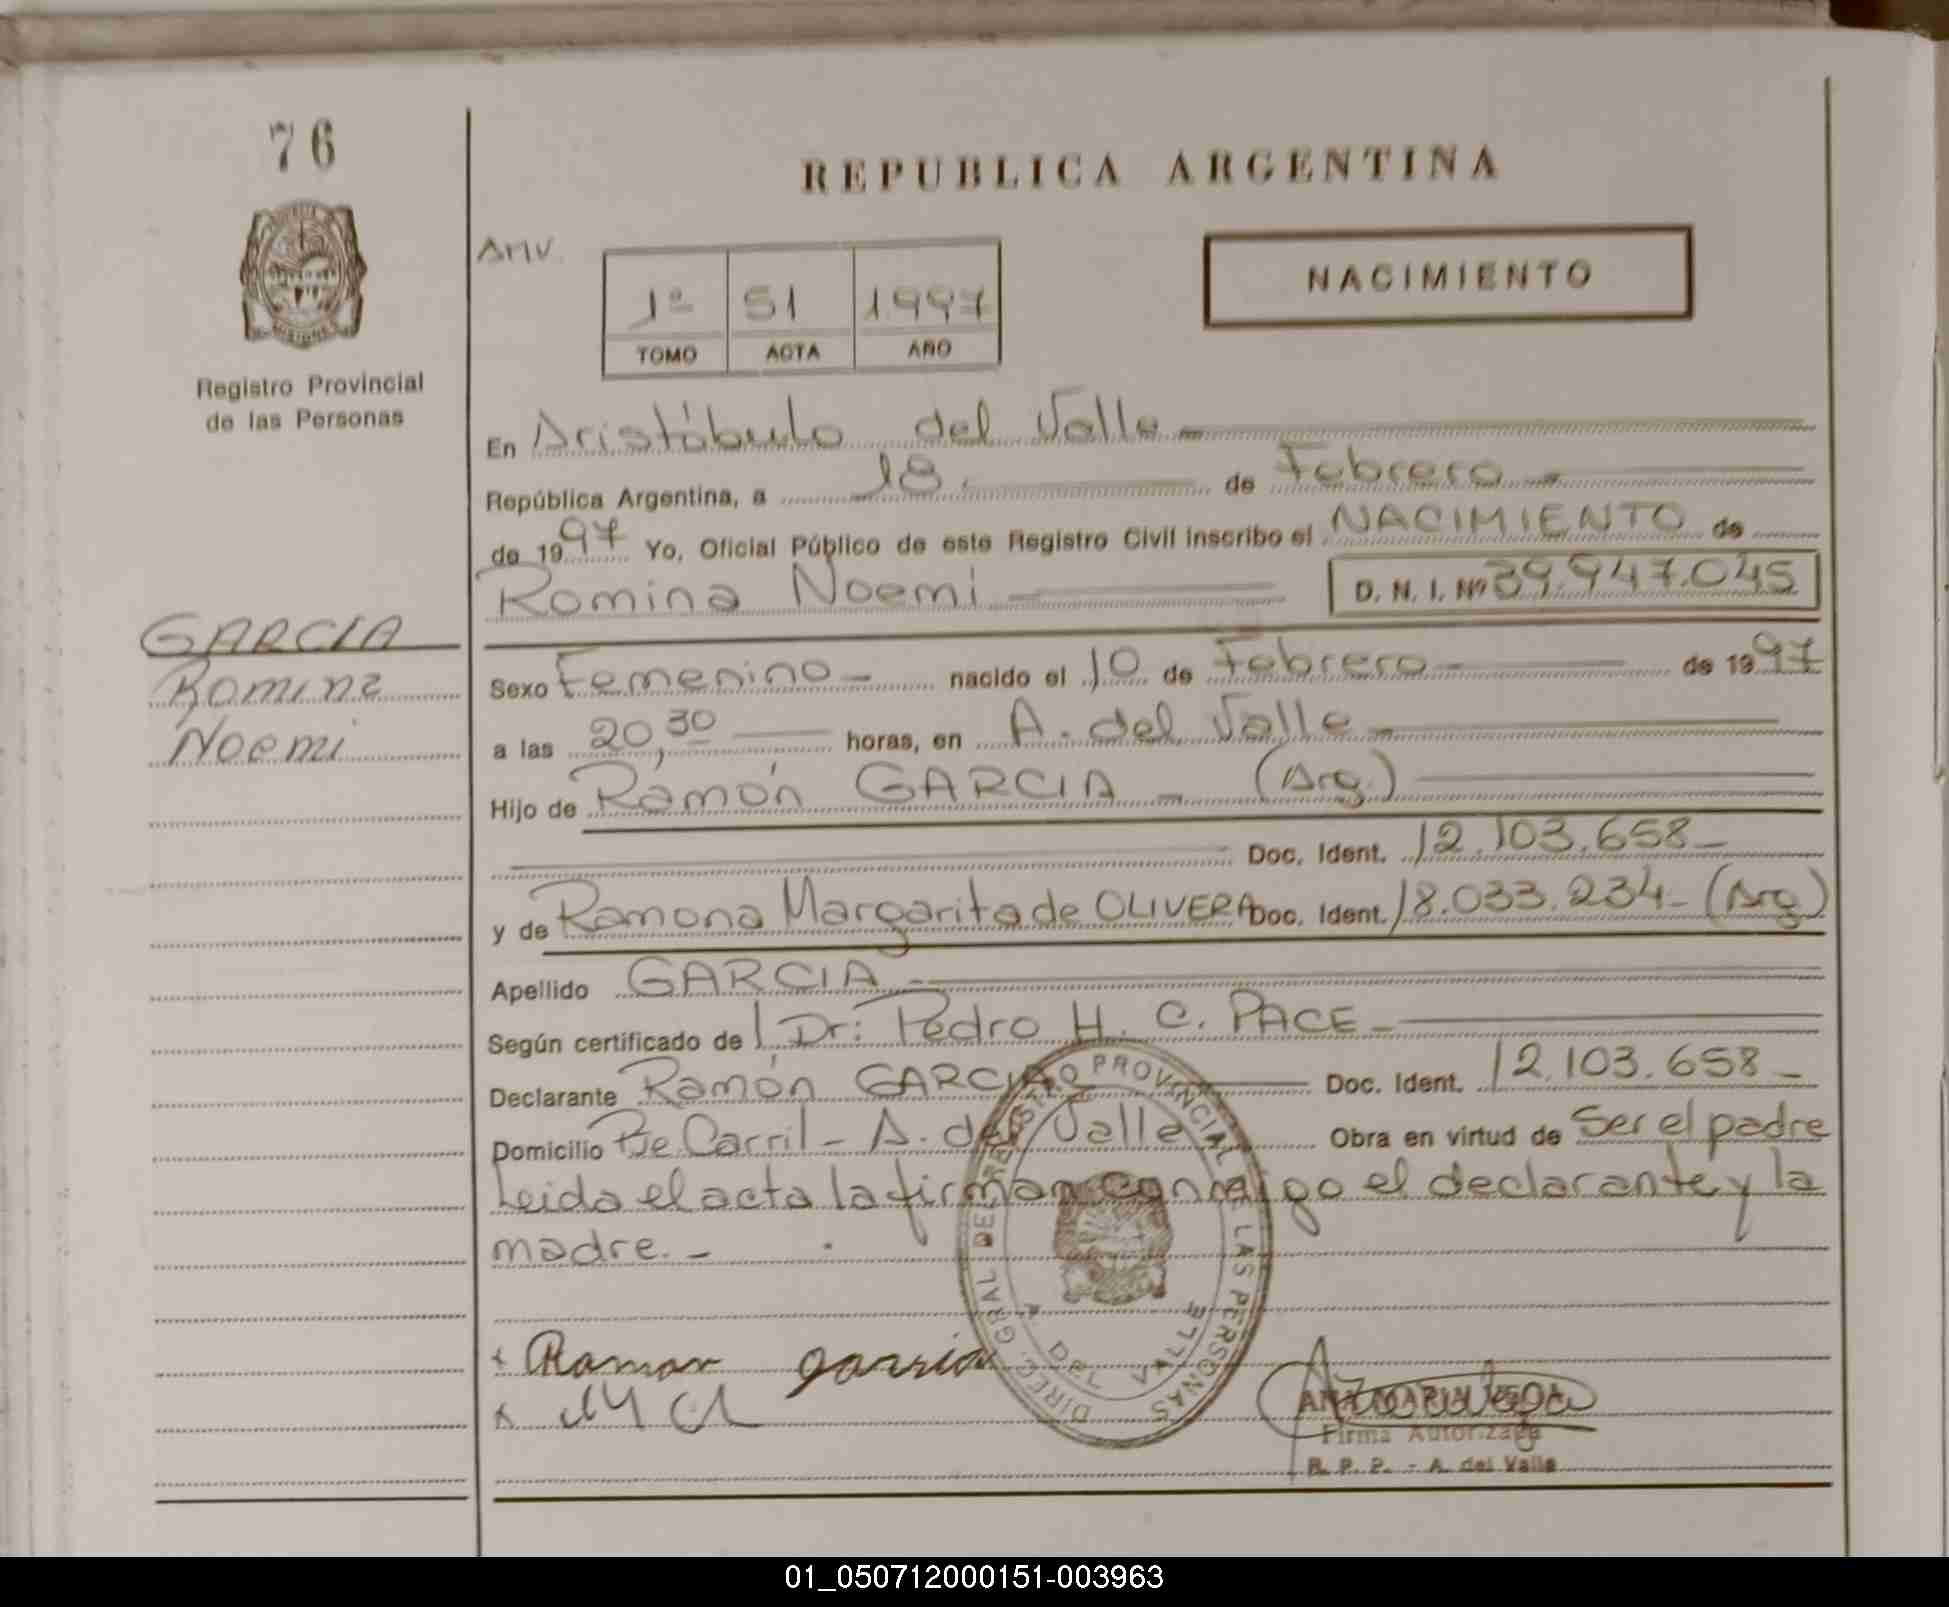 76
REPUBLICA ARGENTINA
Registro Provincial
de las Personas
1º 51 1997
TOMO ACTA AÑO
NACIMIENTO
En Aristóbulo del Valle
República Argentina, a 18 de Febrero
de 1997 Yo, Oficial Público de este Registro Civil inscribo el NACIMIENTO de
Romina Noemi D. N. I. Nº 39.947.045
GARCIA
Romina
Noemi
Sexo Femenino nacido el 10 de Febrero de 1997
a las 20,30 horas, en A. del Valle
Hijo de Ramón GARCIA (Arg.)
Doc. Ident. 12.103.658
y de Ramona Margarita de OLIVERA Doc. Ident. 18.033.234 (Arg)
Apellido GARCIA
Según certificado de Dr: Pedro H. C. PACE
Declarante Ramón GARCIA Doc. Ident. 12.103.658
Domicilio Pje Carril - A. del Valle Obra en virtud de Ser el padre
Leida el acta la firman conmigo el declarante y la
madre.
DIREC. GRAL DEL REGISTRO PROVINCIAL DE LAS PERSONAS
A. DEL VALLE
Ramon garcia
Firma Autorizada
R. P. P. - A. del Valle
01_050712000151-003963